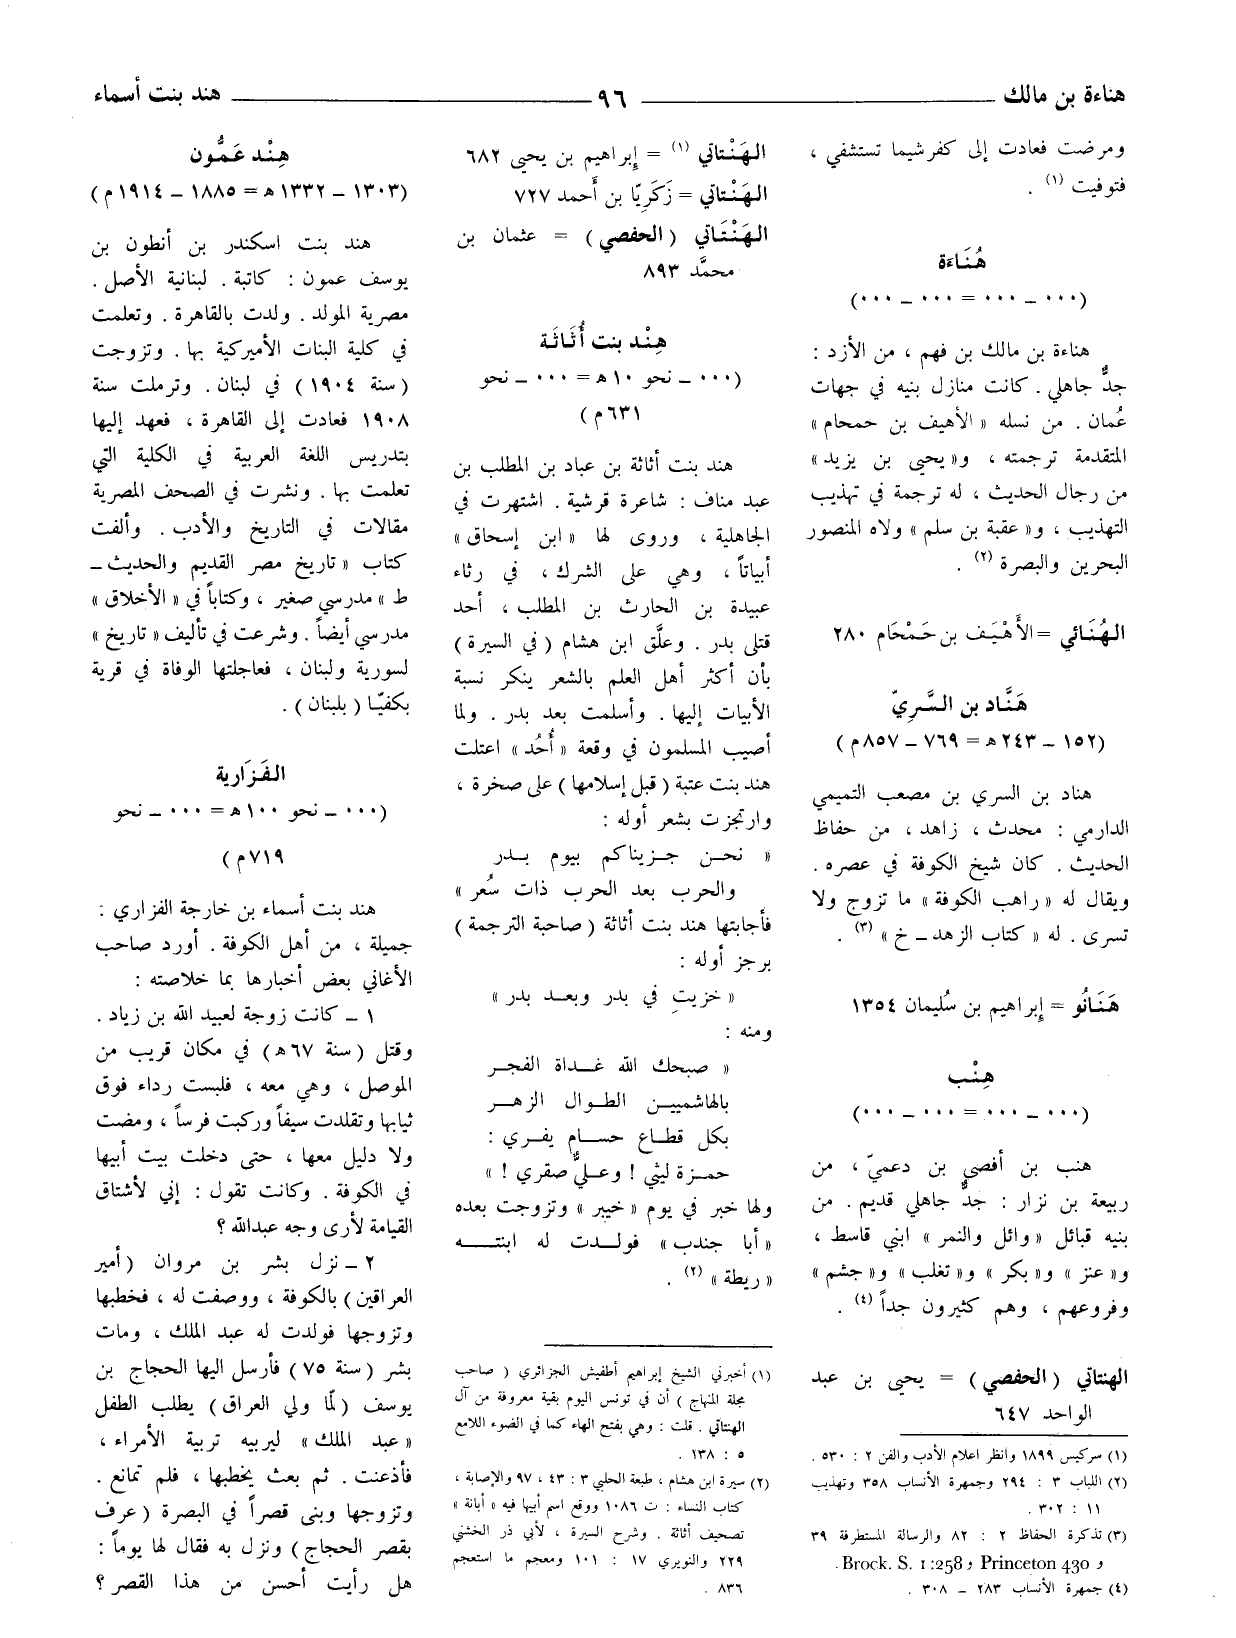 هناءة بن مالك ــــــ ٩٦ ــــــ هند بنت أسماء
ومرضت فعادت إلى كفرشيما تستشفي ،
فتوفيت (١) .
هُنَاءَة
(٠٠٠ ــ ٠٠٠ = ٠٠٠ ــ ٠٠٠)
هناءة بن مالك بن فهم ، من الأزد :
جدٌّ جاهلي . كانت منازل بنيه في جهات
عُمان . من نسله «الأهيف بن حمحام»
المتقدمة ترجمته ، و«يحيى بن يزيد»
من رجال الحديث ، له ترجمة في تهذيب
التهذيب ، و«عقبة بن سلم» ولاه المنصور
البحرين والبصرة (٢) .
الهُنَائي = الأَهْيَف بن حَمْحَام ٢٨٠
هَنَّاد بن السَّرِيّ
(١٥٢ ــ ٢٤٣ھ = ٧٦٩ ــ ٨٥٧م)
هناد بن السري بن مصعب التميمي
الدارمي : محدث ، زاهد ، من حفاظ
الحديث . كان شيخ الكوفة في عصره .
ويقال له «راهب الكوفة» ما تزوج ولا
تسرى . له «كتاب الزهد ــ خ» (٣) .
هَنَانُو = إبراهيم بن سُليمان ١٣٥٤
هِنْب
(٠٠٠ ــ ٠٠٠ = ٠٠٠ ــ ٠٠٠)
هنب بن أفصي بن دعميّ ، من
ربيعة بن نزار : جدٌّ جاهلي قديم . من
بنيه قبائل «وائل والنمر» ابني قاسط ،
و«عنز» و«بكر» و«تغلب» و«جشم»
وفروعهم ، وهم كثيرون جداً (٤) .
الهنتاتي (الحفصي) = يحيى بن عبد
الواحد ٦٤٧
(١) سركيس ١٨٩٩ وانظر اعلام الأدب والفن ٢ : ٥٣٠ .
(٢) اللباب ٣ : ٢٩٤ وجمهرة الأنساب ٣٥٨ وتهذيب
١١ : ٣٠٢ .
(٣) تذكرة الحفاظ ٢ : ٨٢ والرسالة المستطرفة ٣٩
و Princeton 430 و Brock. S. 1 :258.
(٤) جمهرة الأنساب ٢٨٣ ــ ٣٠٨ .
الهَنْتاتي (١) = إبراهيم بن يحيى ٦٨٢
الهَنْتاتي = زَكَرِيّا بن أَحمد ٧٢٧
الهَنْتَاتي (الحفصي) = عثمان بن
محمَّد ٨٩٣
هِنْد بنت أُثَاثَة
(٠٠٠ ــ نحو ١٠ھ = ٠٠٠ ــ نحو
٦٣١م)
هند بنت أثاثة بن عباد بن المطلب بن
عبد مناف : شاعرة قرشية . اشتهرت في
الجاهلية ، وروى لها «ابن إسحاق»
أبياتاً ، وهي على الشرك ، في رثاء
عبيدة بن الحارث بن المطلب ، أحد
قتلى بدر . وعلَّق ابن هشام (في السيرة)
بأن أكثر أهل العلم بالشعر ينكر نسبة
الأبيات إليها . وأسلمت بعد بدر . ولما
أصيب المسلمون في وقعة «أُحُد» اعتلت
هند بنت عتبة (قبل إسلامها) على صخرة ،
وارتجزت بشعر أوله :
« نحن جزيناكم بيوم بدر
والحرب بعد الحرب ذات سُعر »
فأجابتها هند بنت أثاثة (صاحبة الترجمة)
برجز أوله :
« خزيتِ في بدر وبعد بدر »
ومنه :
« صبحك الله غداة الفجر
بالهاشميين الطوال الزهر
بكل قطاع حسام يفري :
حمزة ليثي ! وعليٌّ صقري ! »
ولها خبر في يوم «خيبر» وتزوجت بعده
«أبا جندب» فولدت له ابنته
«ريطة» (٢) .
(١) أخبرني الشيخ إبراهيم أطفيش الجزائري (صاحب
مجلة المنهاج) أن في تونس اليوم بقية معروفة من آل
الهنتاتي . قلت : وهي بفتح الهاء كما في الضوء اللامع
٥ : ١٣٨ .
(٢) سيرة ابن هشام ، طبعة الحلبي ٣ : ٤٣ ، ٩٧ والإصابة ،
كتاب النساء : ت ١٠٨٦ ووقع اسم أبيها فيه «أبانة»
تصحيف أثاثة . وشرح السيرة ، لأبي ذر الخشني
٢٢٩ والنويري ١٧ : ١٠١ ومعجم ما استعجم
٨٣٦ .
هِنْد عَمُّون
(١٣٠٣ ــ ١٣٣٢ھ = ١٨٨٥ ــ ١٩١٤م)
هند بنت اسكندر بن أنطون بن
يوسف عمون : كاتبة . لبنانية الأصل .
مصرية المولد . ولدت بالقاهرة . وتعلمت
في كلية البنات الأميركية بها . وتزوجت
(سنة ١٩٠٤) في لبنان . وترملت سنة
١٩٠٨ فعادت إلى القاهرة ، فعهد إليها
بتدريس اللغة العربية في الكلية التي
تعلمت بها . ونشرت في الصحف المصرية
مقالات في التاريخ والأدب . وألفت
كتاب «تاريخ مصر القديم والحديث ــ
ط» مدرسي صغير ، وكتاباً في «الأخلاق»
مدرسي أيضاً . وشرعت في تأليف «تاريخ»
لسورية ولبنان ، فعاجلتها الوفاة في قرية
بكفيّا (بلبنان) .
الفَزَارية
(٠٠٠ ــ نحو ١٠٠ھ = ٠٠٠ ــ نحو
٧١٩م)
هند بنت أسماء بن خارجة الفزاري :
جميلة ، من أهل الكوفة . أورد صاحب
الأغاني بعض أخبارها بما خلاصته :
١ ــ كانت زوجة لعبيد الله بن زياد .
وقتل (سنة ٦٧ھ) في مكان قريب من
الموصل ، وهي معه ، فلبست رداء فوق
ثيابها وتقلدت سيفاً وركبت فرساً ، ومضت
ولا دليل معها ، حتى دخلت بيت أبيها
في الكوفة . وكانت تقول : إني لأشتاق
القيامة لأرى وجه عبدالله ؟
٢ ــ نزل بشر بن مروان (أمير
العراقين) بالكوفة ، ووصفت له ، فخطبها
وتزوجها فولدت له عبد الملك ، ومات
بشر (سنة ٧٥) فأرسل اليها الحجاج بن
يوسف (لمّا ولي العراق) يطلب الطفل
«عبد الملك» ليربيه تربية الأمراء ،
فأذعنت . ثم بعث يخطبها ، فلم تمانع .
وتزوجها وبنى قصراً في البصرة (عرف
بقصر الحجاج) ونزل به فقال لها يوماً :
هل رأيت أحسن من هذا القصر ؟